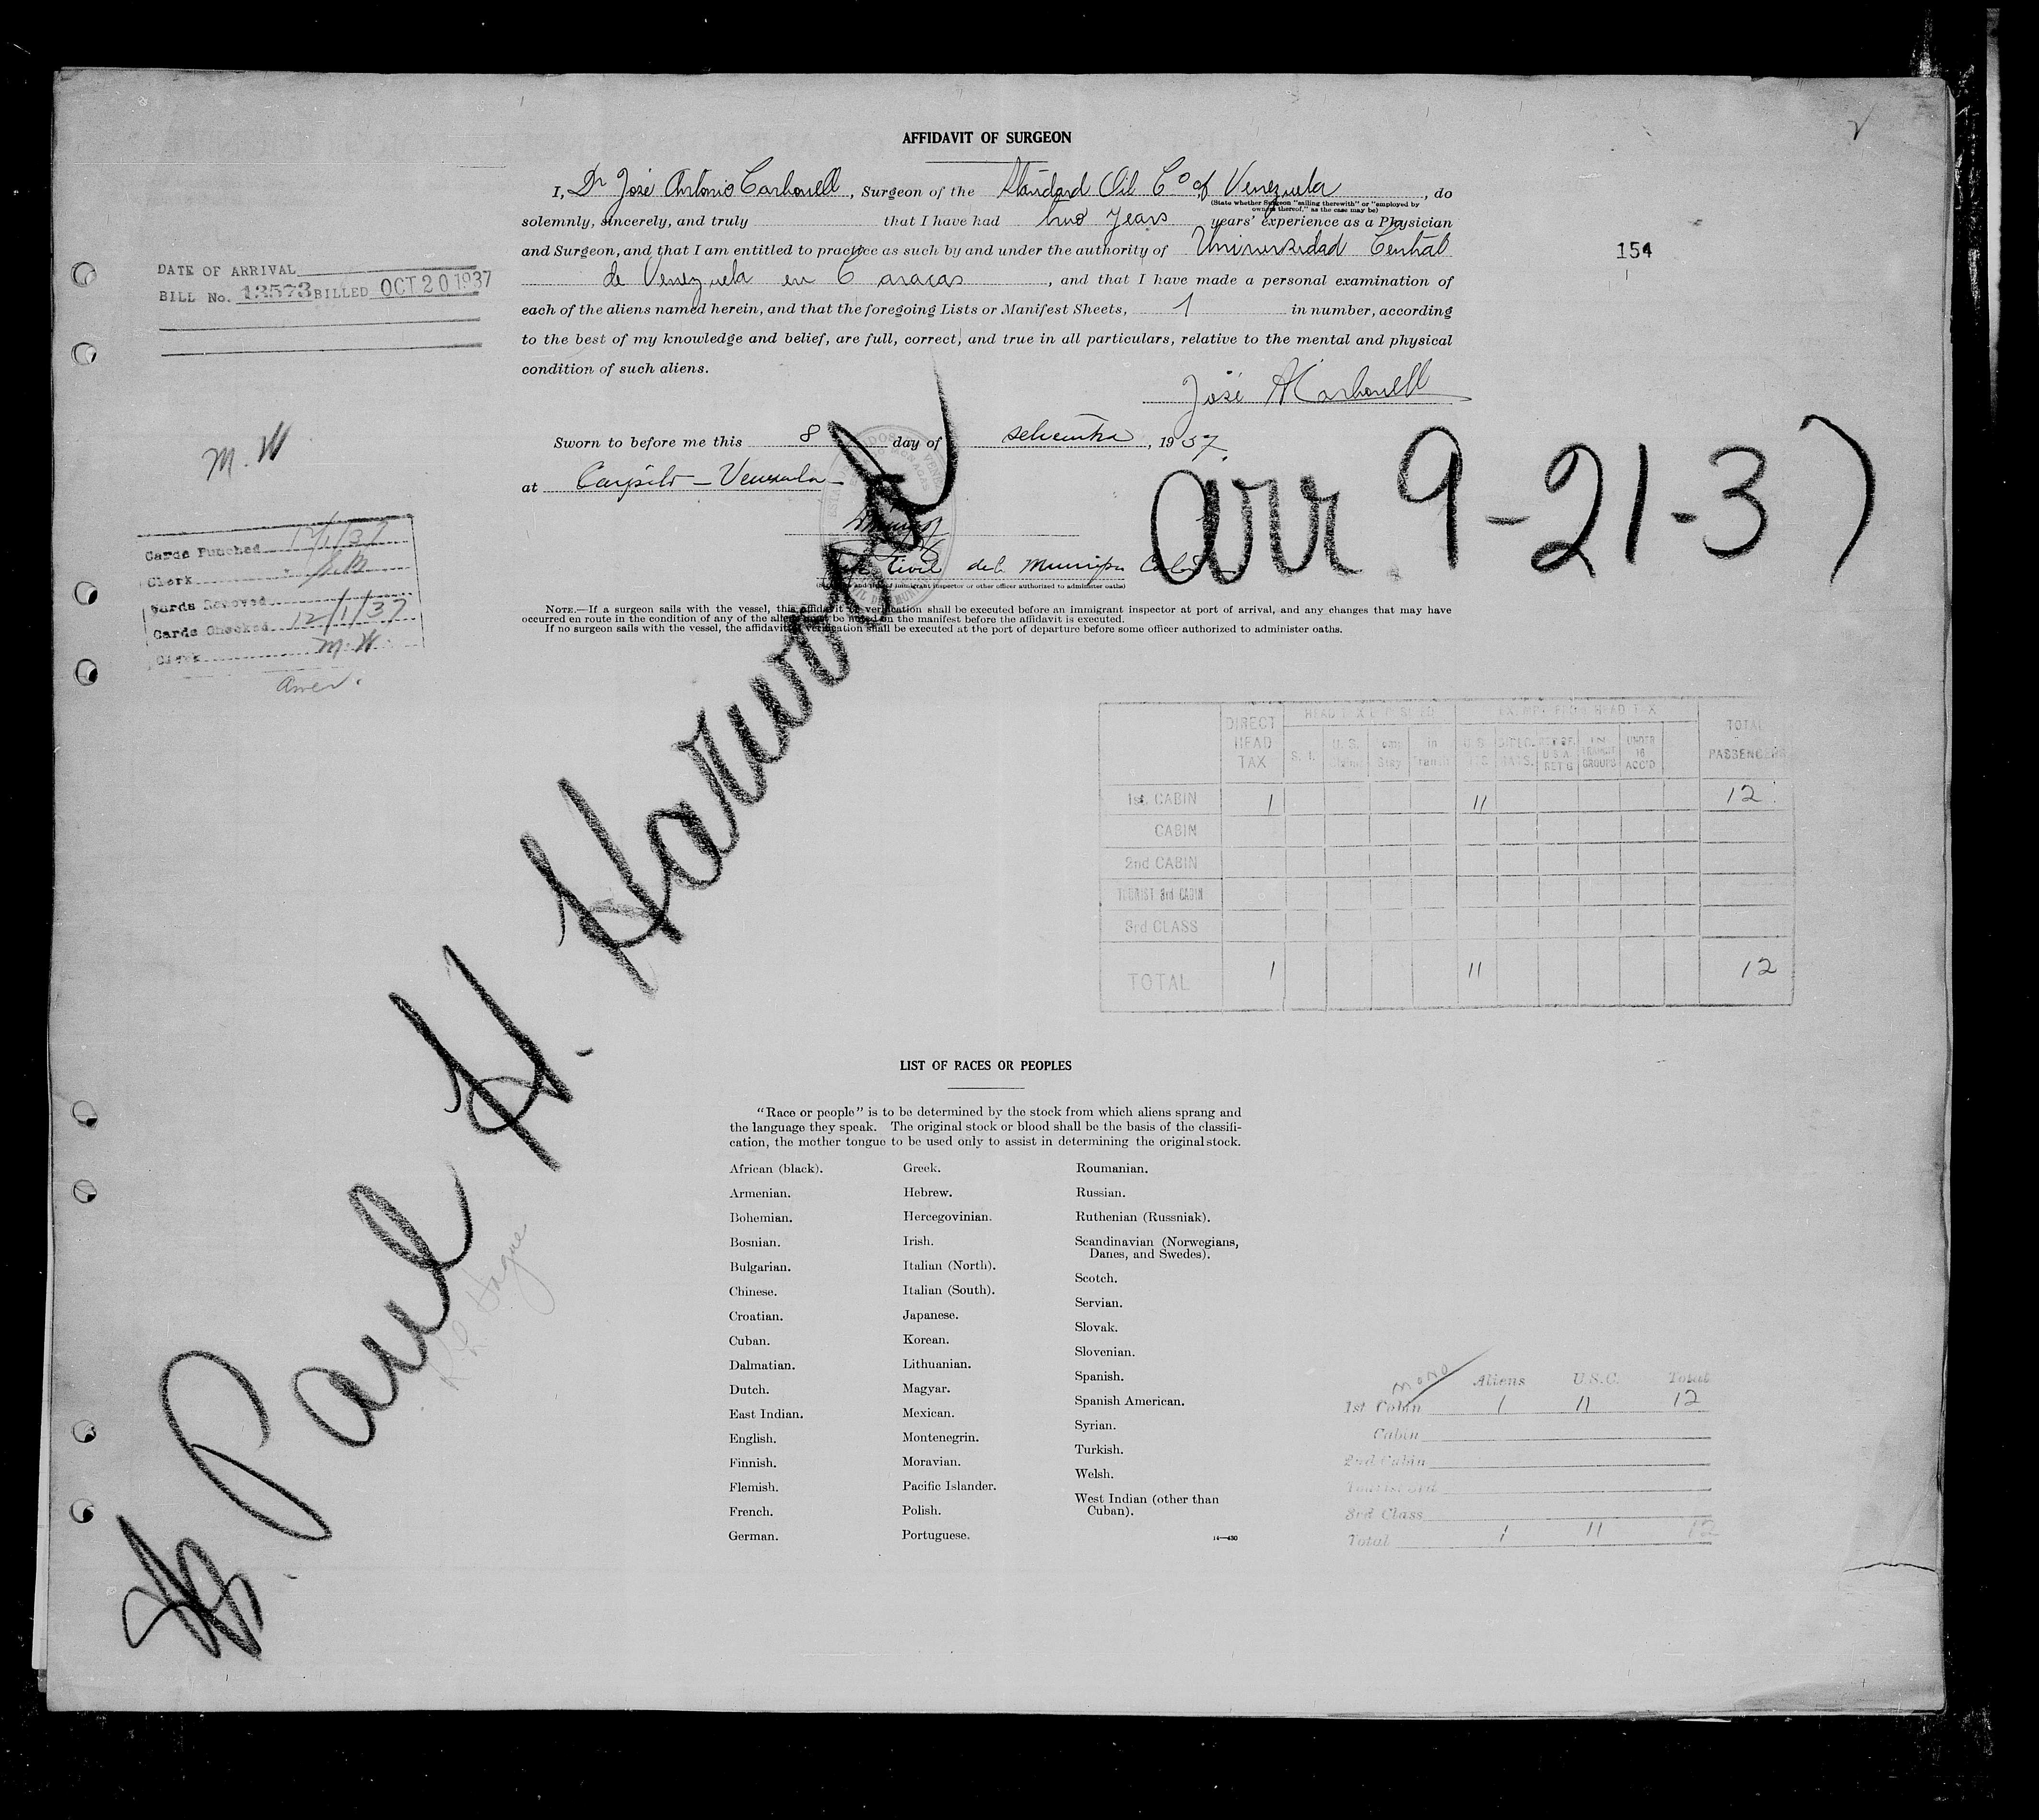 AFFIDAVIT OF SURGEON
I, Dr José Antonio Carbonell, Surgeon of the Standard Oil Co of Venezuela, do
(State whether Surgeon "sailing therewith" or "employed by
owners thereof," as the case may be)
solemnly, sincerely, and truly that I have had two years years' experience as a Physician
and Surgeon, and that I am entitled to practice as such by and under the authority of Universidad Central
de Venezuela en Caracas, and that I have made a personal examination of
each of the aliens named herein, and that the foregoing Lists or Manifest Sheets, 1 in number, according
to the best of my knowledge and belief, are full, correct, and true in all particulars, relative to the mental and physical
condition of such aliens.
José A Carbonell
Sworn to before me this 8 day of , 1937
at Caripito - Venezuela
Civil del Municipio
immigrant inspector or other officer authorized to administer oaths)
NOTE.—If a surgeon sails with the vessel, this affidavit or verification shall be executed before an immigrant inspector at port of arrival, and any changes that may have
occurred en route in the condition of any of the aliens must be noted on the manifest before the affidavit is executed.
If no surgeon sails with the vessel, the affidavit or verification shall be executed at the port of departure before some officer authorized to administer oaths.
154
DATE OF ARRIVAL
BILL No. 13573 BILLED OCT 20 1937
M.W
Cards Punched 12/1/37
Clerk
Cards Removed
Cards Checked 12/1/37
Clerk M.W.
Amer.
arr 9-21-37
SS. Paul H. Harwood
R.L. Hague
DIRECT HEAD TAX
EXEMPT FROM HEAD TAX
TOTAL PASSENGERS
S. I.
UNDER 16 ACC'D
1st. CABIN 1 11 12
CABIN
2nd CABIN
TOURIST 3rd CABIN
3rd CLASS
TOTAL 1 11 12
LIST OF RACES OR PEOPLES
"Race or people" is to be determined by the stock from which aliens sprang and
the language they speak. The original stock or blood shall be the basis of the classifi-
cation, the mother tongue to be used only to assist in determining the original stock.
African (black).
Armenian.
Bohemian.
Bosnian.
Bulgarian.
Chinese.
Croatian.
Cuban.
Dalmatian.
Dutch.
East Indian.
English.
Finnish.
Flemish.
French.
German.
Greek.
Hebrew.
Hercegovinian.
Irish.
Italian (North).
Italian (South).
Japanese.
Korean.
Lithuanian.
Magyar.
Mexican.
Montenegrin.
Moravian.
Pacific Islander.
Polish.
Portuguese.
Roumanian.
Russian.
Ruthenian (Russniak).
Scandinavian (Norwegians,
Danes, and Swedes).
Scotch.
Servian.
Slovak.
Slovenian.
Spanish.
Spanish American.
Syrian.
Turkish.
Welsh.
West Indian (other than
Cuban).
14—430
MONO
Aliens U.S.C. Total
1st Cabin 1 11 12
Cabin
2nd Cabin
Tourist 3rd
3rd Class
Total 1 11 12